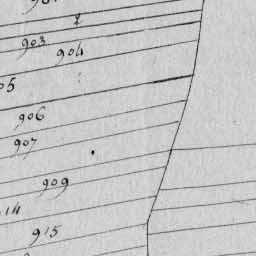 903
904
906
907
909
14
915